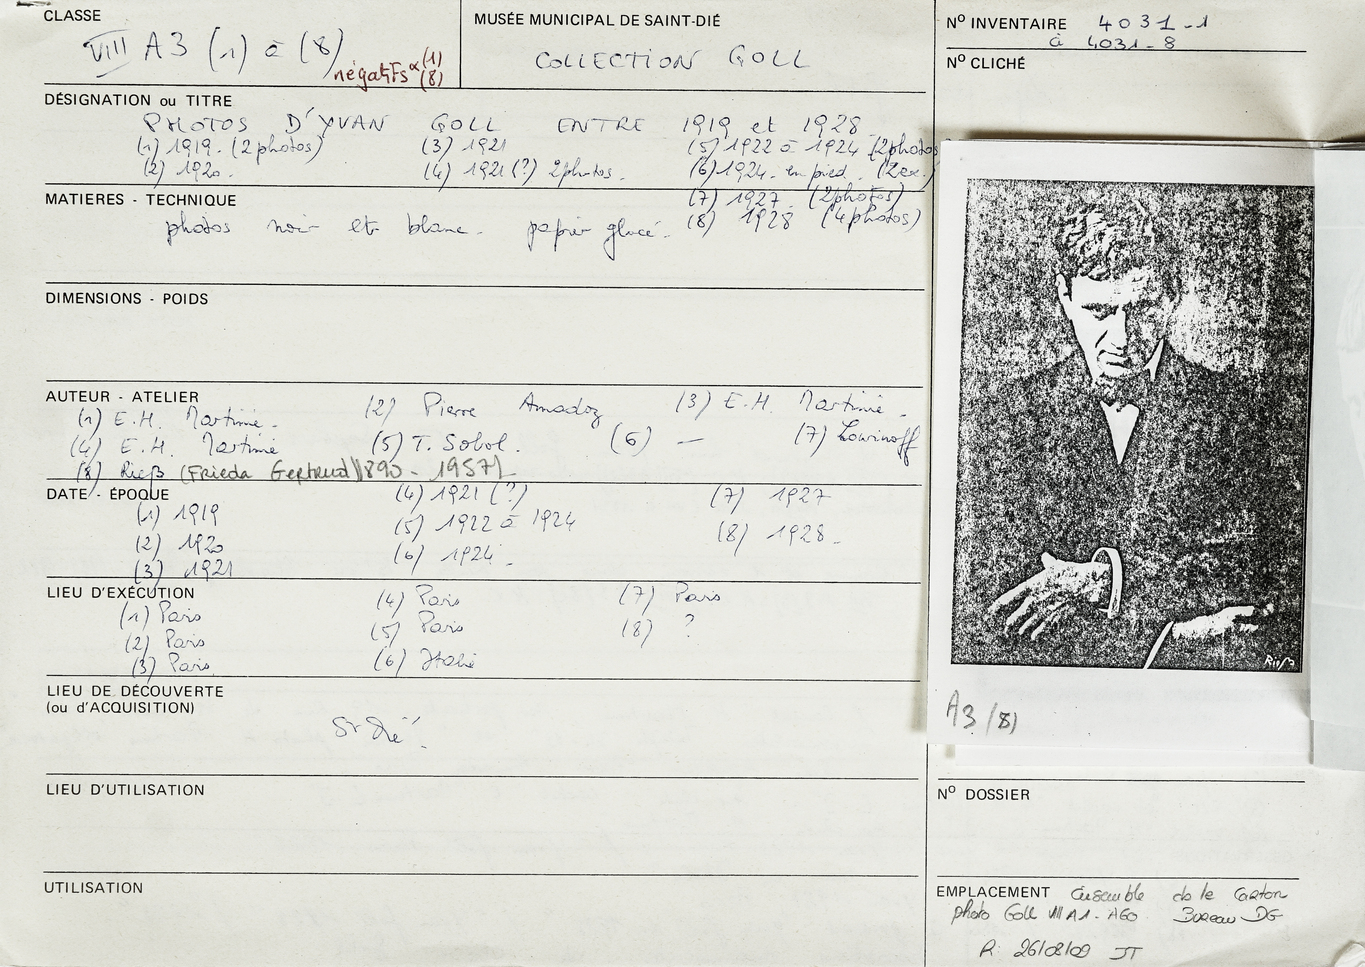 CLASSE
VIII A3 (1) à (8)
négatifs (1)
(8)
MUSÉE MUNICIPAL DE SAINT-DIÉ
COLLECTION GOLL
Nº INVENTAIRE 4031-1
à 4031-8
Nº CLICHÉ
DÉSIGNATION ou TITRE
PHOTOS D'YVAN GOLL ENTRE 1919 et 1928
(1) 1919. (2 photos) (3) 1921 (5) 1922 à 1924 (2 photos
(2) 1920. (4) 1921 (?) 2 photos. (6) 1924. en pied. (2 ex.)
(7) 1927. (2 photos)
(8) 1928 (4 photos)
MATIERES - TECHNIQUE
photos noir et blanc. papier glacé.
DIMENSIONS - POIDS
AUTEUR - ATELIER
(1) E.H. Martinié. (2) Pierre (3) E.H. Martinié.
(4) E.H. Martinié (5) T. Sobol. (6) — (7) Lowinoff
(8) Rieß (Frieda Gertrud) 1890 - 1957)
DATE - ÉPOQUE
(1) 1919 (4) 1921 (?) (7) 1927
(2) 1920 (5) 1922 à 1924 (8) 1928.
(3) 1921 (6) 1924.
LIEU D'EXÉCUTION
(1) Paris (4) Paris (7) Paris
(2) Paris (5) Paris (8) ?
(3) Paris (6) Italie
LIEU DE DÉCOUVERTE
(ou d'ACQUISITION)
St Dié.
LIEU D'UTILISATION
UTILISATION
Rieß
A3 (8)
Nº DOSSIER
EMPLACEMENT Ensemble ds le Carton
photo Goll VIII A1 - A60 Bureau DG
R: 26/08/09 JT